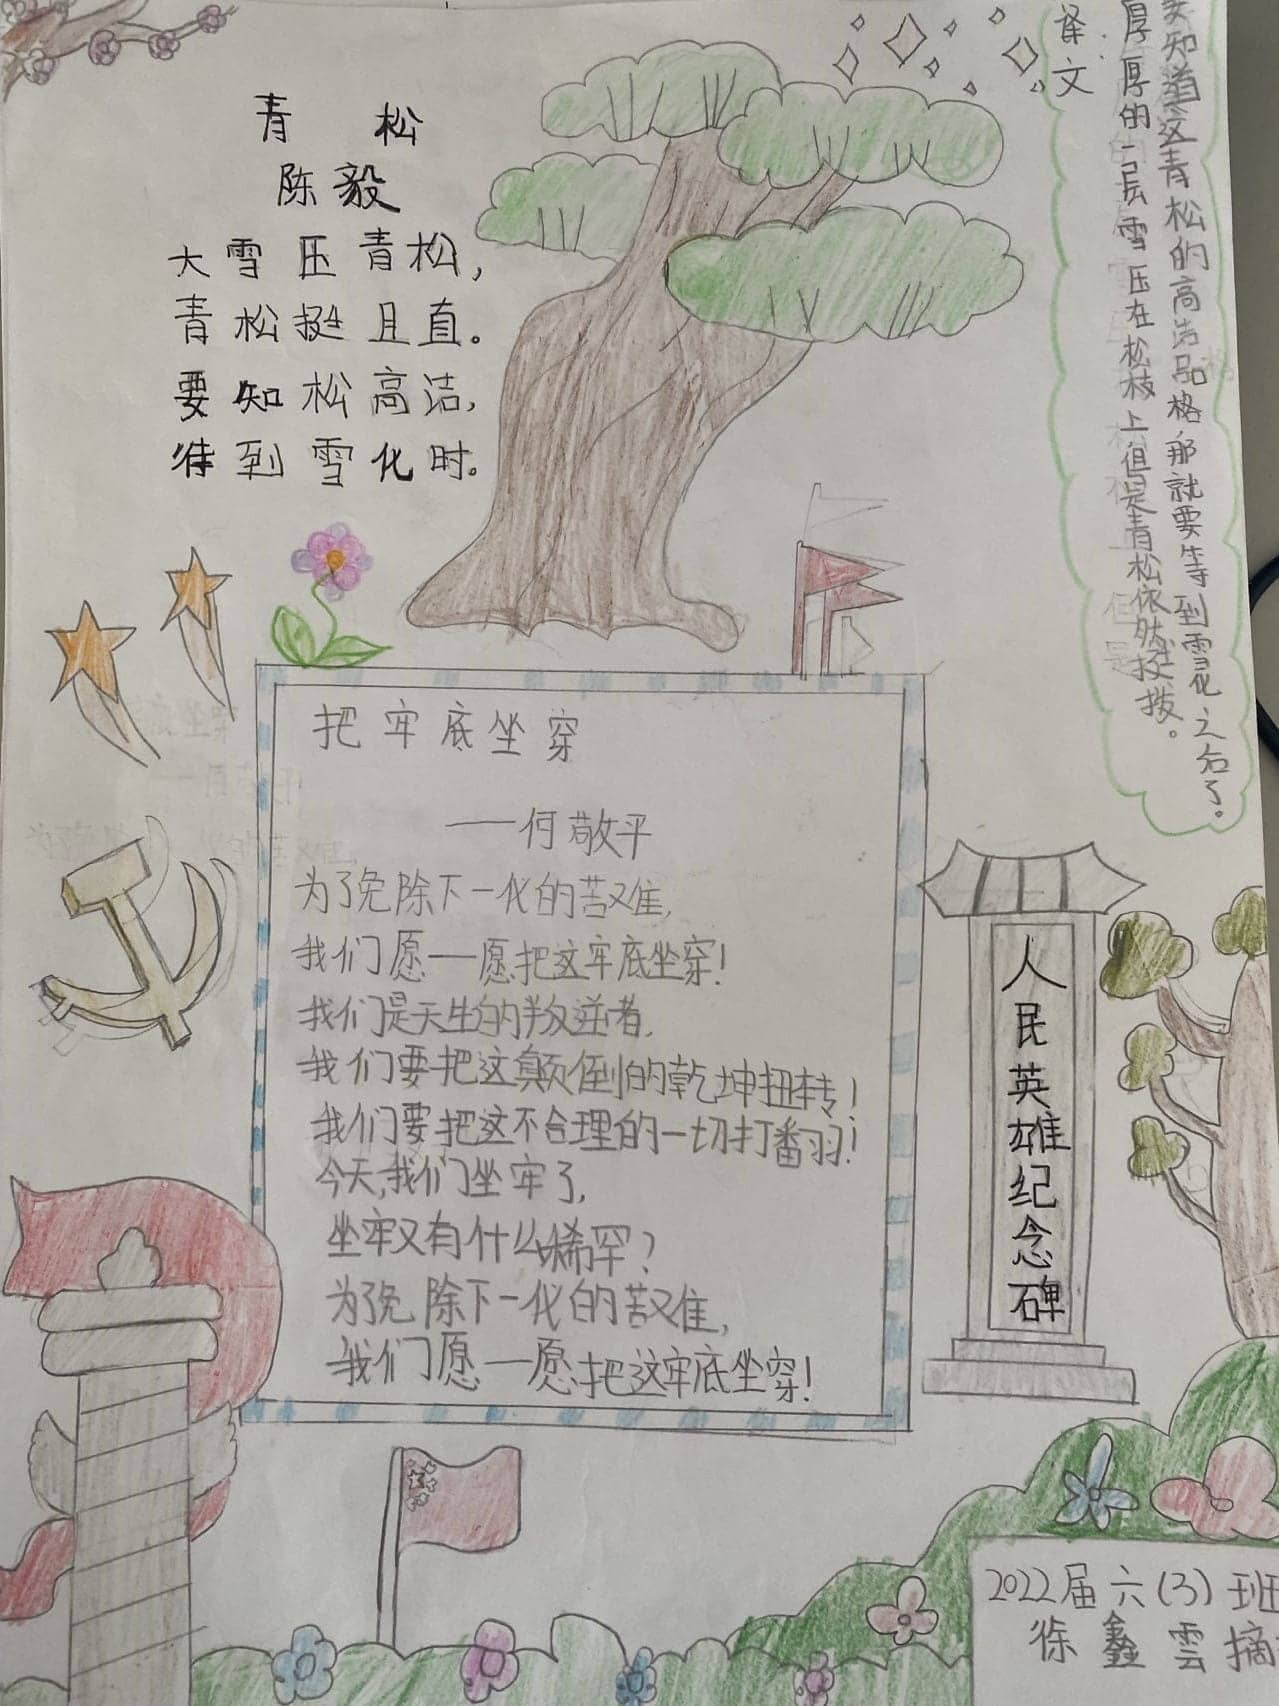 青松
陈毅
大雪压青松，
青松挺且直。
要知松高洁，
待到雪化时。
译文：
厚厚的一层雪压在松枝上但是青松依然挺拨。
要知道这青松的高洁品格，那就要等到雪化之后了。
把牢底坐穿
——何敬平
为了免除下一代的苦难，
我们愿——愿把这牢底坐穿！
我们是天生的叛逆者，
我们要把这颠倒的乾坤扭转！
我们要把这不合理的一切打翻！
今天，我们坐牢了，
坐牢又有什么稀罕？
为了免除下一代的苦难，
我们愿——愿把这牢底坐穿！
人民英雄纪念碑
2022届六(3)班
徐鑫雲摘